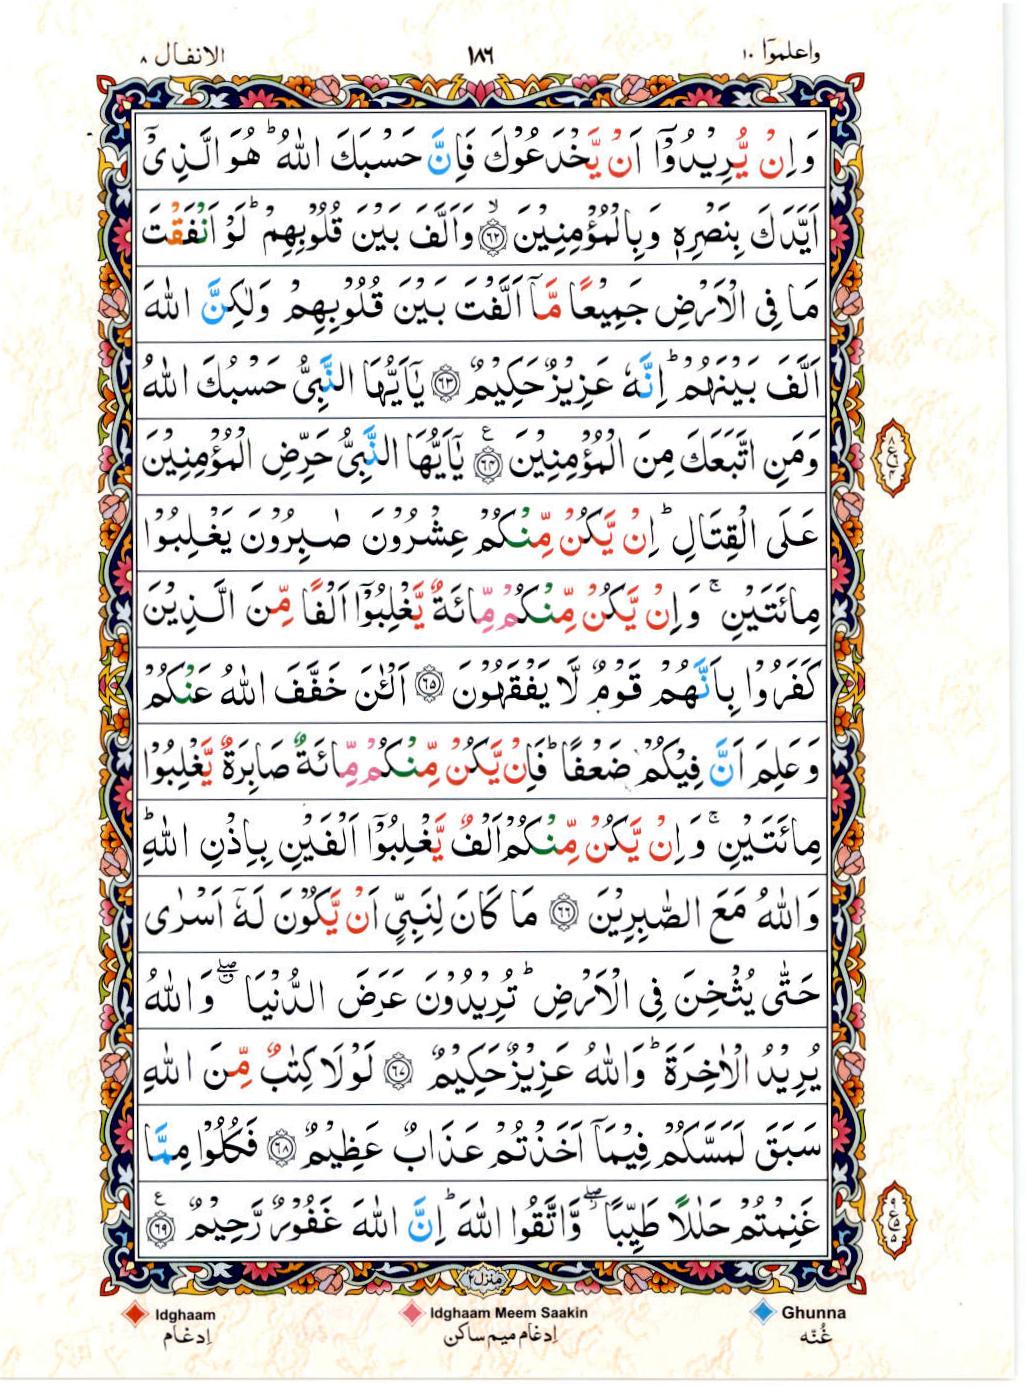 الانفال ٨ ١٨٦ واعلموٓا ١٠
وَاِنْ يُّرِيْدُوْٓا اَنْ يَّخْدَعُوْكَ فَاِنَّ حَسْبَكَ اللّٰهُ ؕ هُوَ الَّذِیْۤ
اَيَّدَكَ بِنَصْرِهٖ وَبِالْمُؤْمِنِيْنَ ۙ﴿۶۲﴾ وَاَلَّفَ بَيْنَ قُلُوْبِهِمْ ؕ لَوْ اَنْفَقْتَ
مَا فِی الْاَرْضِ جَمِيْعًا مَّاۤ اَلَّفْتَ بَيْنَ قُلُوْبِهِمْ وَلٰكِنَّ اللّٰهَ
اَلَّفَ بَيْنَهُمْ ؕ اِنَّهٗ عَزِيْزٌ حَكِيْمٌ ﴿۶۳﴾ يٰۤاَيُّهَا النَّبِیُّ حَسْبُكَ اللّٰهُ
وَمَنِ اتَّبَعَكَ مِنَ الْمُؤْمِنِيْنَ ﴿۶۴﴾ ع يٰۤاَيُّهَا النَّبِیُّ حَرِّضِ الْمُؤْمِنِيْنَ
عَلَى الْقِتَالِ ؕ اِنْ يَّكُنْ مِّنْكُمْ عِشْرُوْنَ صٰبِرُوْنَ يَغْلِبُوْا
مِائَتَيْنِ ۚ وَاِنْ يَّكُنْ مِّنْكُمْ مِّائَةٌ يَّغْلِبُوْۤا اَلْفًا مِّنَ الَّذِيْنَ
كَفَرُوْا بِاَنَّهُمْ قَوْمٌ لَّا يَفْقَهُوْنَ ﴿۶۵﴾ اَلْـٰٔنَ خَفَّفَ اللّٰهُ عَنْكُمْ
وَعَلِمَ اَنَّ فِيْكُمْ ضَعْفًا ؕ فَاِنْ يَّكُنْ مِّنْكُمْ مِّائَةٌ صَابِرَةٌ يَّغْلِبُوْا
مِائَتَيْنِ ۚ وَاِنْ يَّكُنْ مِّنْكُمْ اَلْفٌ يَّغْلِبُوْۤا اَلْفَيْنِ بِاِذْنِ اللّٰهِ ؕ
وَاللّٰهُ مَعَ الصّٰبِرِيْنَ ﴿۶۶﴾ مَا كَانَ لِنَبِیٍّ اَنْ يَّكُوْنَ لَهٗۤ اَسْرٰى
حَتّٰى يُثْخِنَ فِی الْاَرْضِ ؕ تُرِيْدُوْنَ عَرَضَ الدُّنْيَا ۖ وَاللّٰهُ
يُرِيْدُ الْاٰخِرَةَ ؕ وَاللّٰهُ عَزِيْزٌ حَكِيْمٌ ﴿۶۷﴾ لَوْلَا كِتٰبٌ مِّنَ اللّٰهِ
سَبَقَ لَمَسَّكُمْ فِيْمَاۤ اَخَذْتُمْ عَذَابٌ عَظِيْمٌ ﴿۶۸﴾ فَكُلُوْا مِمَّا
غَنِمْتُمْ حَلٰلًا طَيِّبًا ۖ وَّاتَّقُوا اللّٰهَ ؕ اِنَّ اللّٰهَ غَفُوْرٌ رَّحِيْمٌ ﴿۶۹﴾ ع
منزل ٢
Idghaam Idghaam Meem Saakin Ghunna
اِدغام اِدغام میم ساکن غُنّه